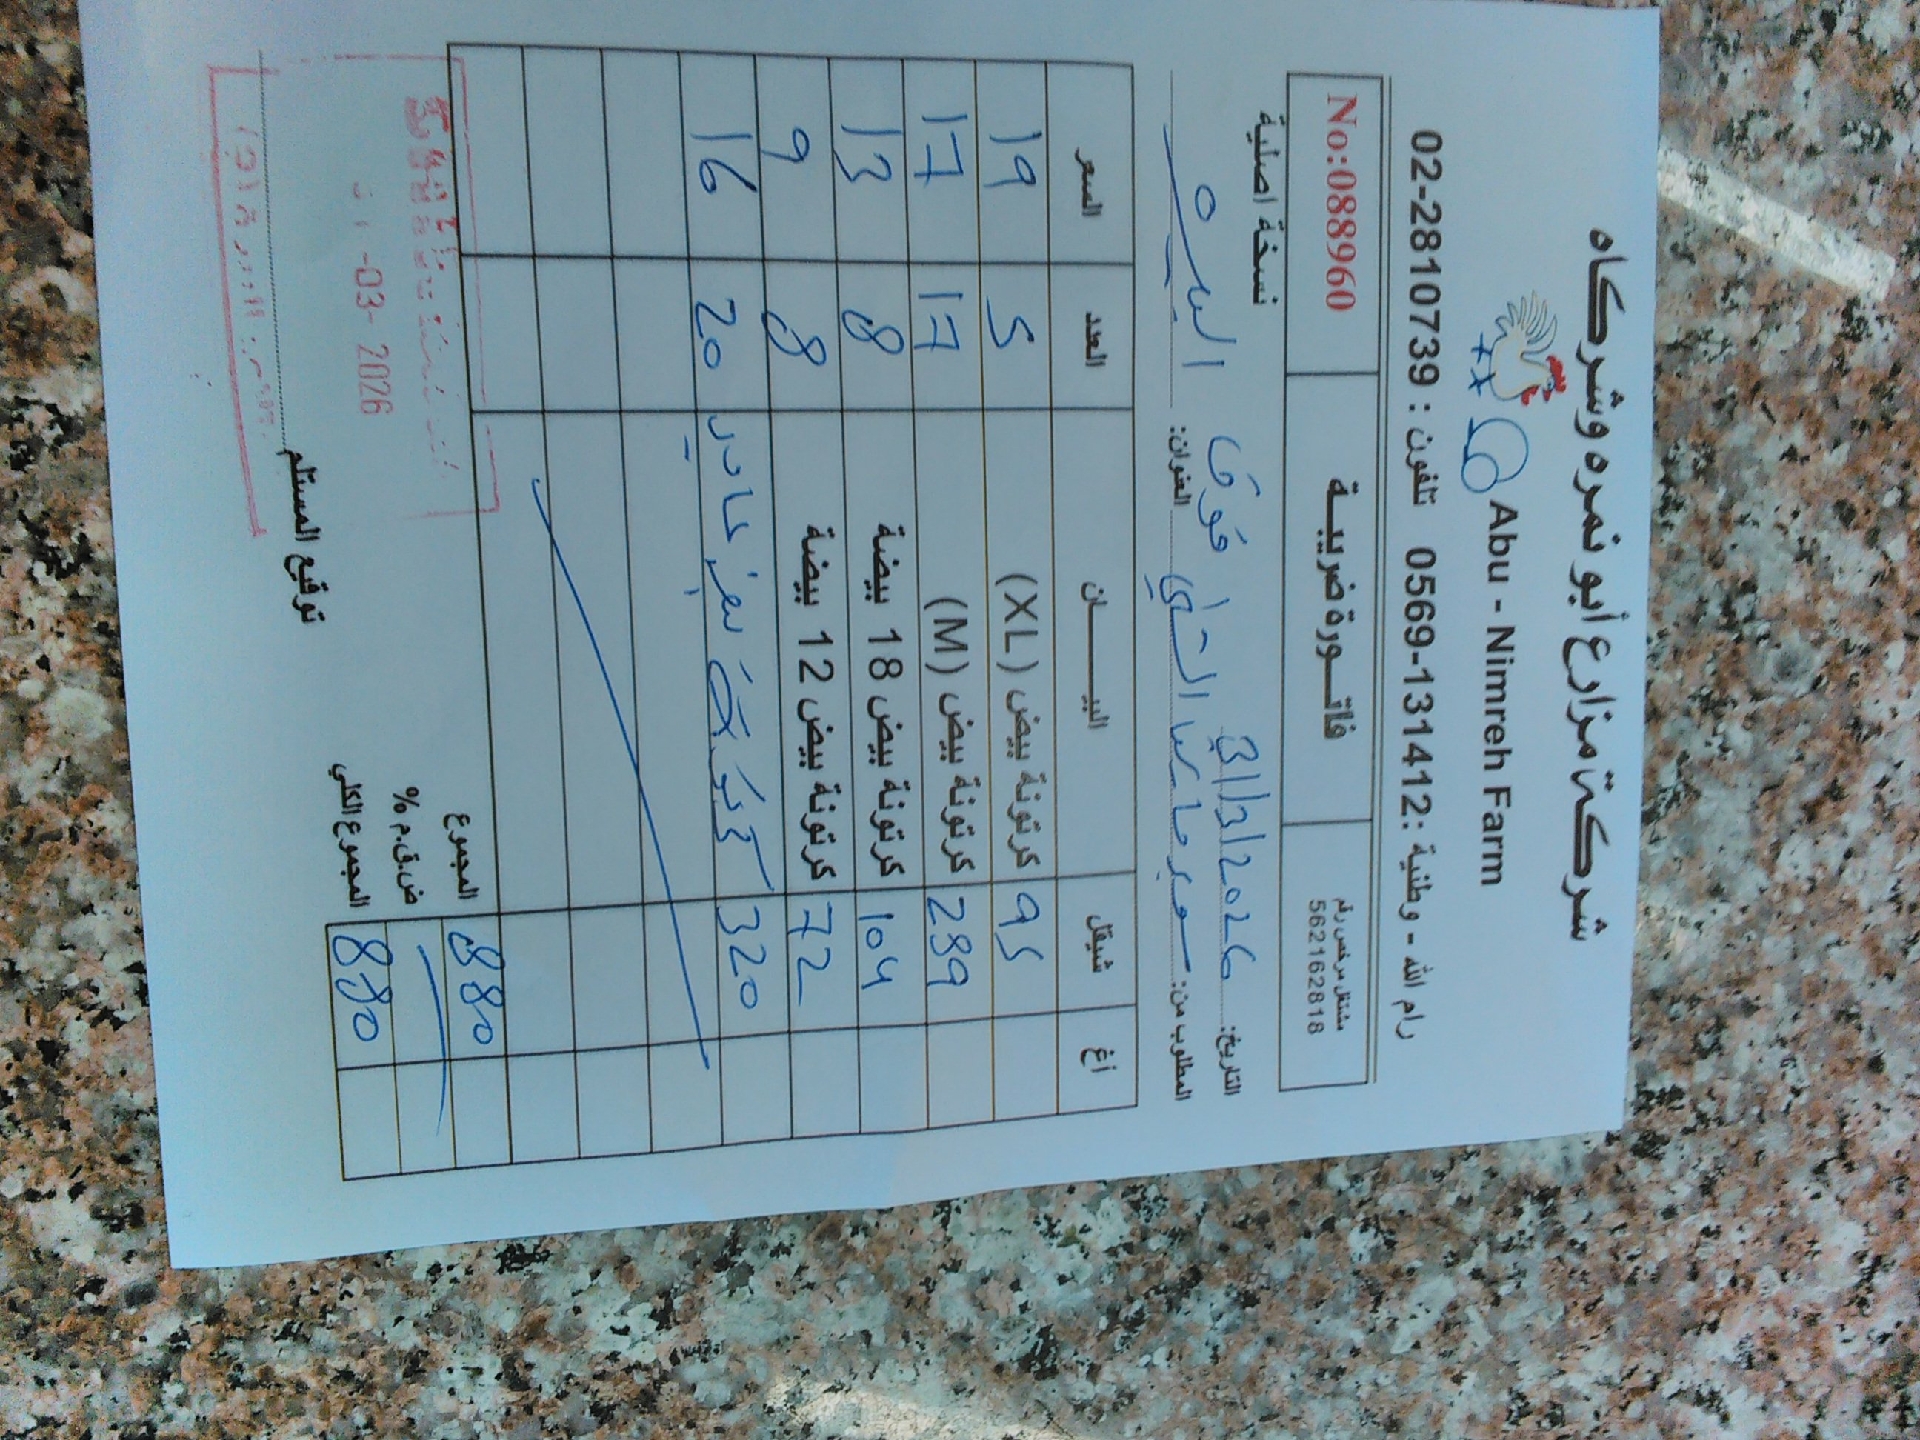 شركة مزارع أبو نمره وشركاه
Abu - Nimreh Farm
رام الله - وطنية: 0569-131412 تلفون : 02-2810739
مشتغل مرخص رقم
562162818
فاتـــورة ضريبـــة
No:088960
نسخة اصلية
التاريخ: 2026
المطلوب من: سوبر ماركت العنوان: البيره
أغ شيقل البيـــــــان العدد السعر
95 كرتونة بيض (XL) 5 19
289 كرتونة بيض (M) 17 17
104 كرتونة بيض 18 بيضة 8 13
72 كرتونة بيض 12 بيضة 8 9
320 20 16
المجموع 880
ض.ق.م %
المجموع الكلي 880
توقيع المستلم
-03- 2026